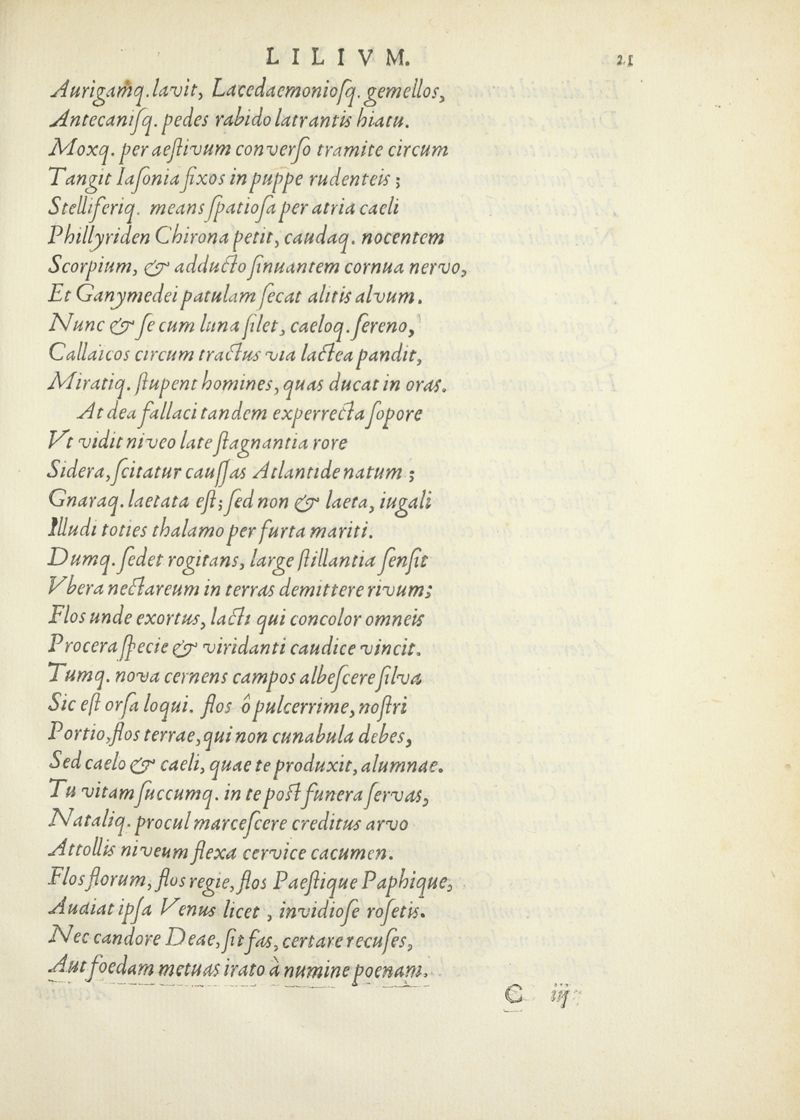 LILIVM. 21
Aurigamq. lavit, Lacedaemoniosq. gemellos,
Antecanisq. pedes rabido latrantis hiatu.
Moxq. per aestivum converso tramite circum
Tangit Iasonia fixos in puppe rudenteis;
Stelliferiq. means spatiosa per atria caeli
Phillyriden Chirona petit, caudaq. nocentem
Scorpium, & adducto sinuantem cornua nervo,
Et Ganymedei patulam secat alitis alvum.
Nunc & se cum luna silet, caeloq. sereno,
Callaicos circum tractus via lactea pandit,
Miratiq. stupent homines, quas ducat in oras.
At dea fallaci tandem experrecta sopore
Vt vidit niveo late stagnantia rore
Sidera, scitatur caussas Atlantide natum;
Gnaraq. laetata est; sed non & laeta, iugali
Illudi toties thalamo per furta mariti.
Dumq. sedet rogitans, large stillantia sensit
Vbera nectareum in terras demittere rivum;
Flos unde exortus, lacti qui concolor omneis
Procera specie & viridanti caudice vincit.
Tumq. nova cernens campos albescere silva
Sic est orsa loqui. flos ô pulcerrime, nostri
Portio, flos terrae, qui non cunabula debes,
Sed caelo & caeli, quae te produxit, alumnae.
Tu vitam succumq. in te post funera servas,
Nataliq. procul marcescere creditus arvo
Attollis niveum flexa cervice cacumen.
Flos florum, flos regie, flos Paestique Paphique,
Audiat ipsa Venus licet, invidiose rosetis.
Nec candore Deae, sit fas, certare recuses,
Aut foedam metuas irato à numine poenam,
C iij